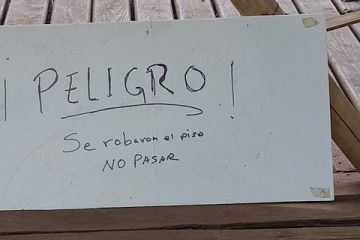 ¡PELIGRO!
Se robaron el piso
NO PASAR